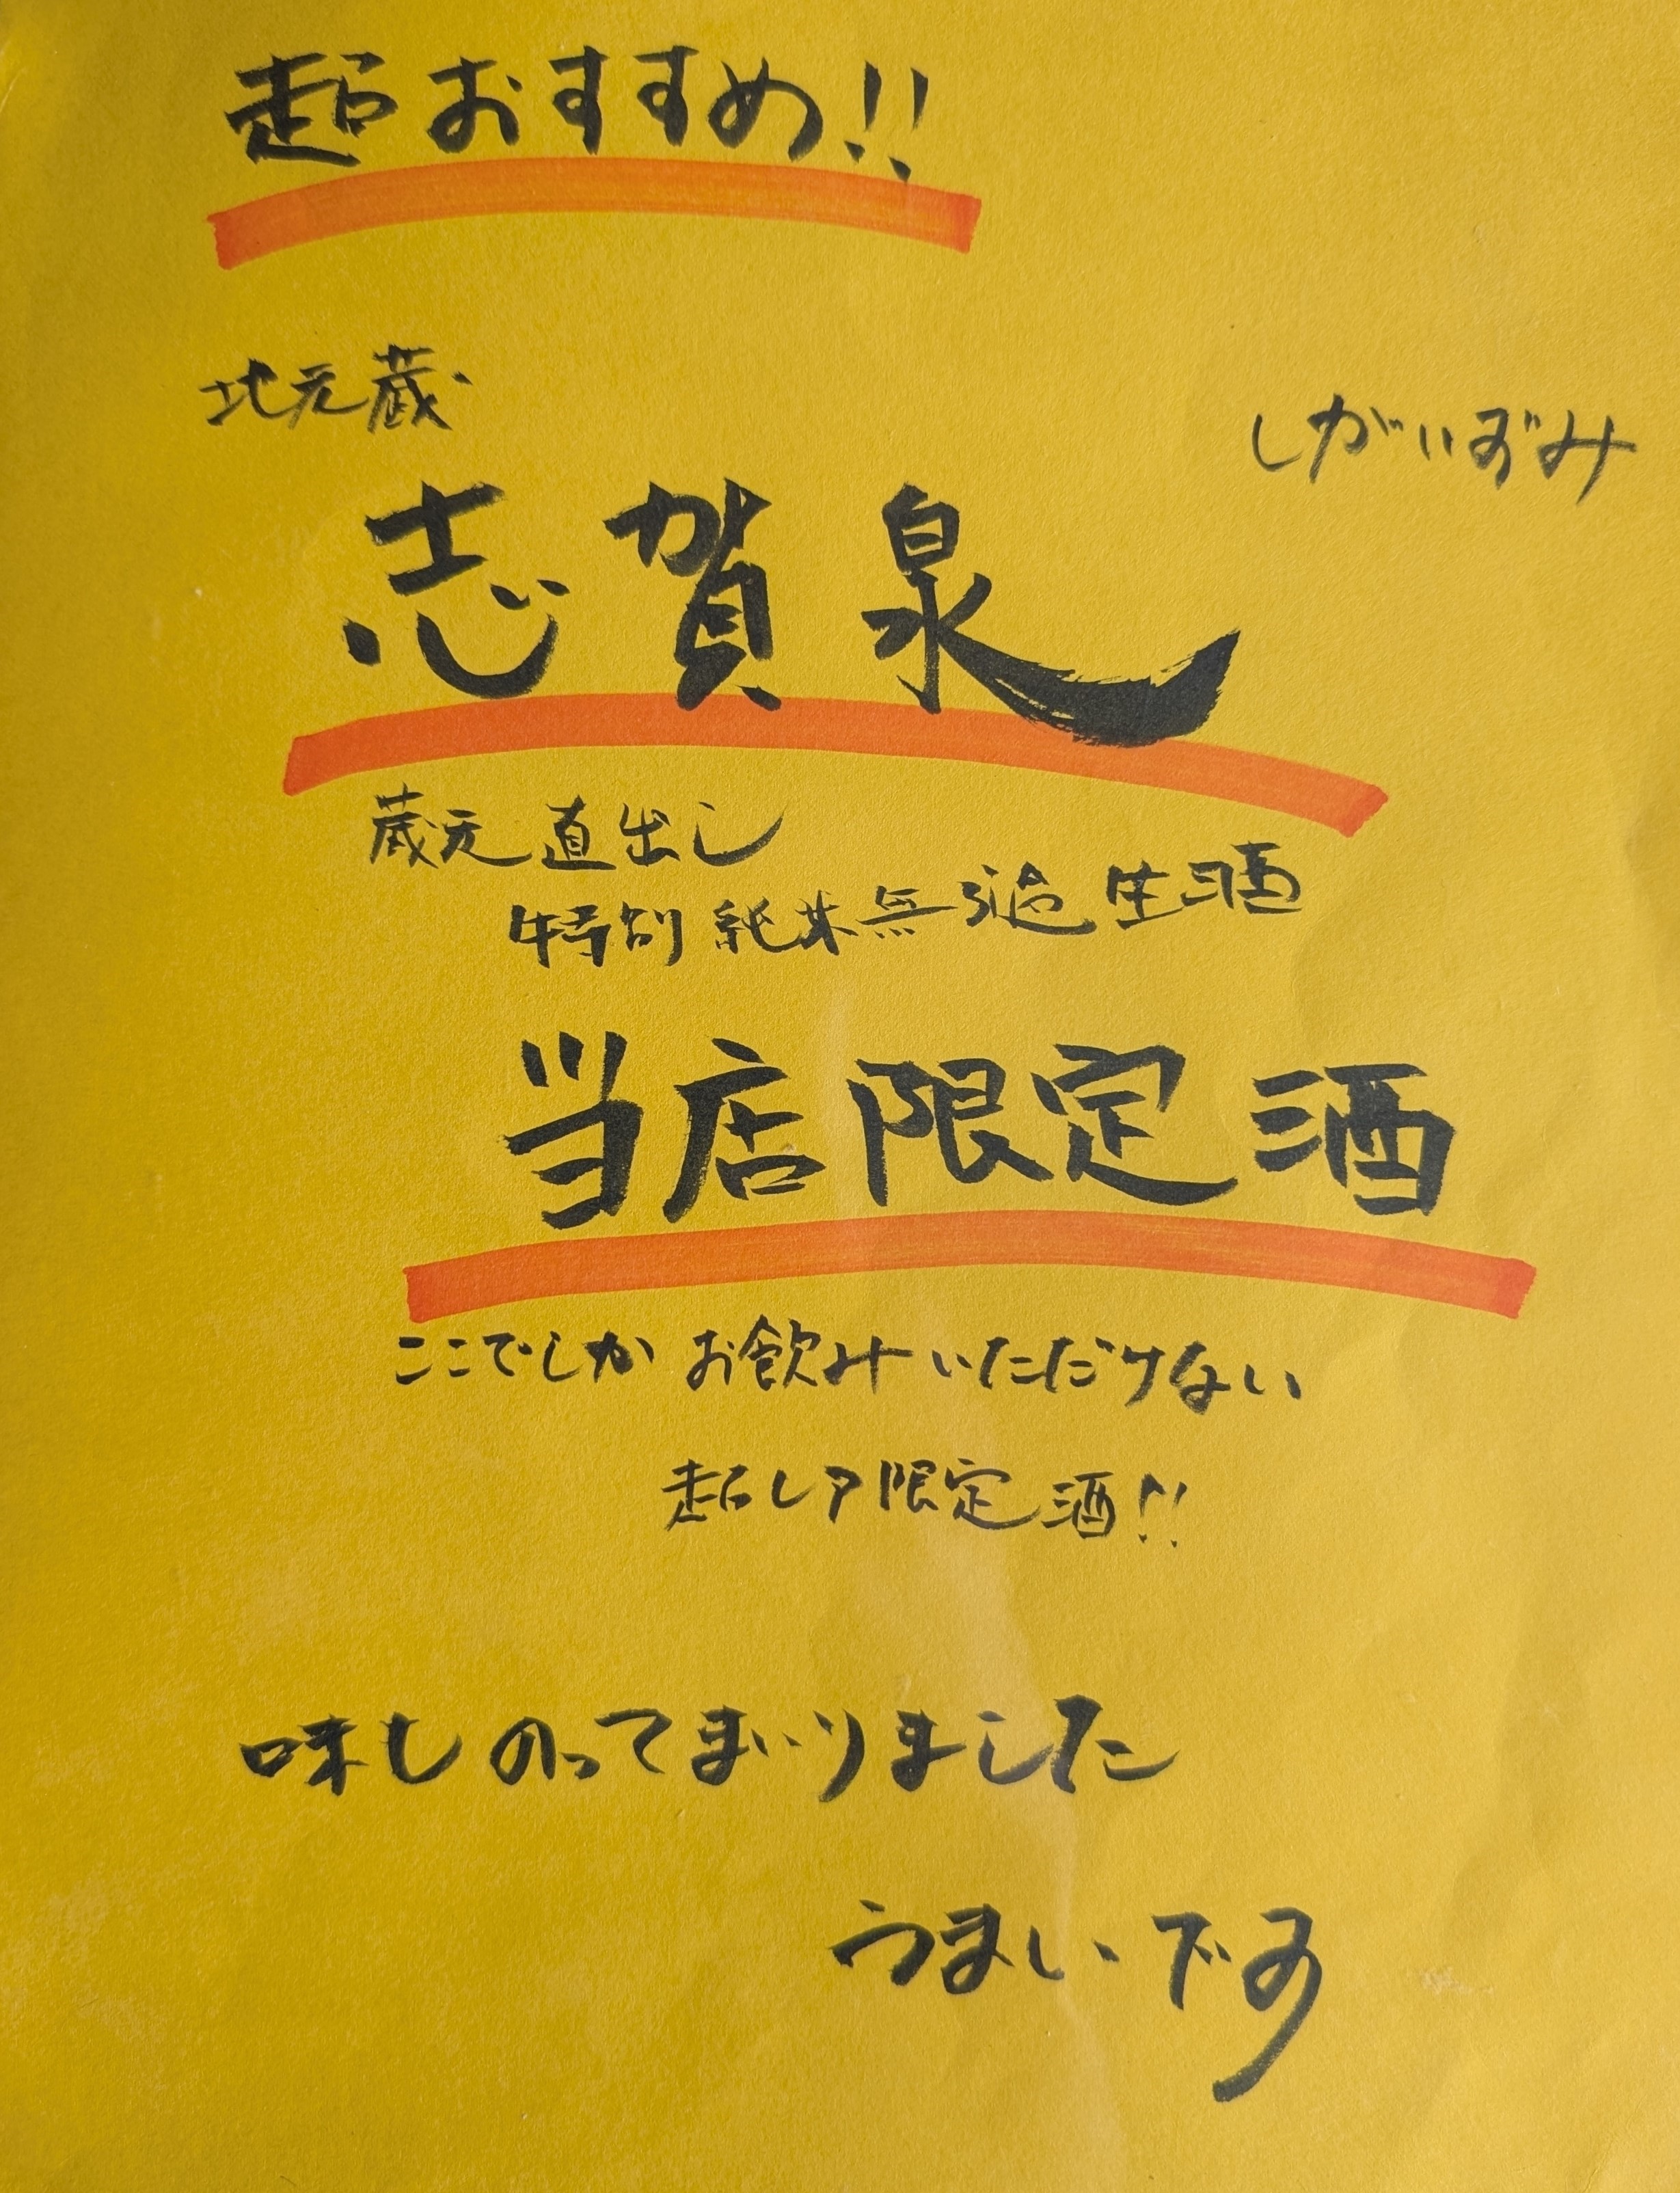 超おすすめ!!
地元蔵
しがいずみ
志賀泉
蔵元直出し
特別純米無ろ過生酒
当店限定酒
ここでしかお飲みいただけない
超レア限定酒!!
味しのってまいりました
うまいです